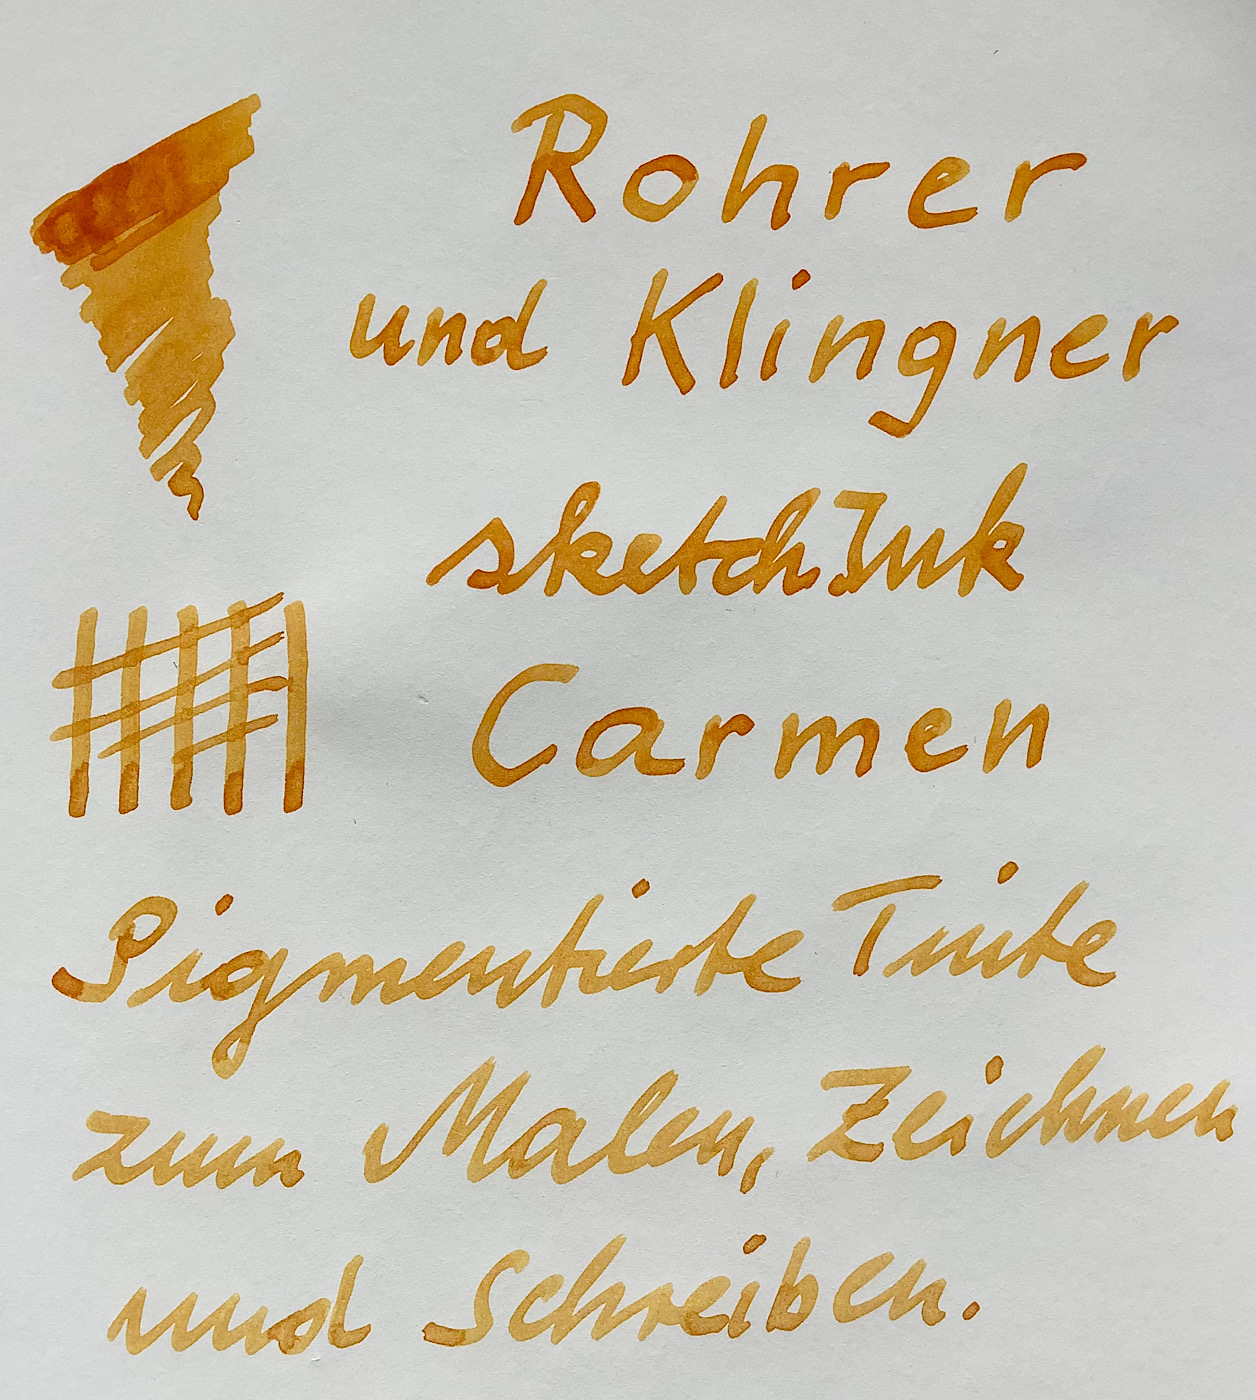 Rohrer
und Klingner
sketchInk
Carmen
Pigmentierte Tinte
zum Malen, Zeichnen
und Schreiben.